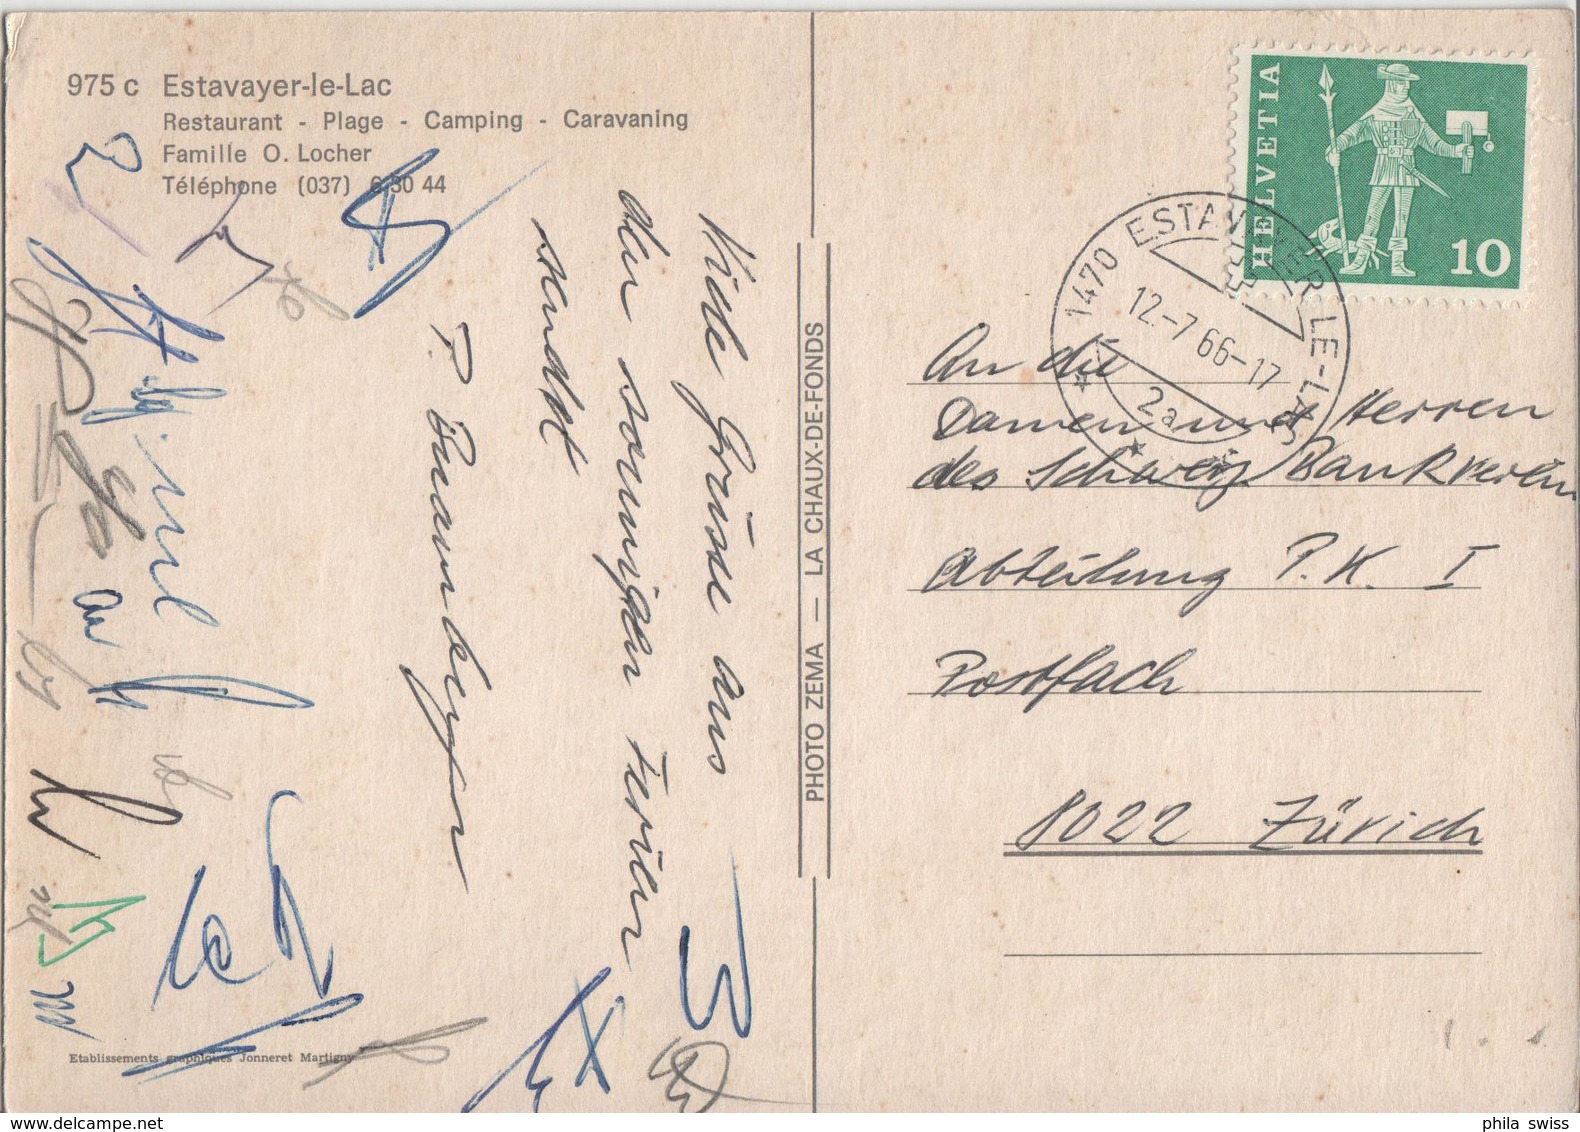 975 c Estavayer-le-Lac
Restaurant - Plage - Camping - Caravaning
Famille O. Locher
Téléphone (037) 6 30 44
Viele Grüsse aus
den sonnigen Ferien
sendt
P. Baumberger
PHOTO ZEMA — LA CHAUX-DE-FONDS
Etablissements graphiques Jonneret Martigny
HELVETIA
10
1470 ESTAVAYER-LE-LAC
12.-7 66-17
2a
An die
Damen und Herren
des Schweiz Bankverein
Abteilung P. K. I
Postfach
8022 Zürich
phila swiss